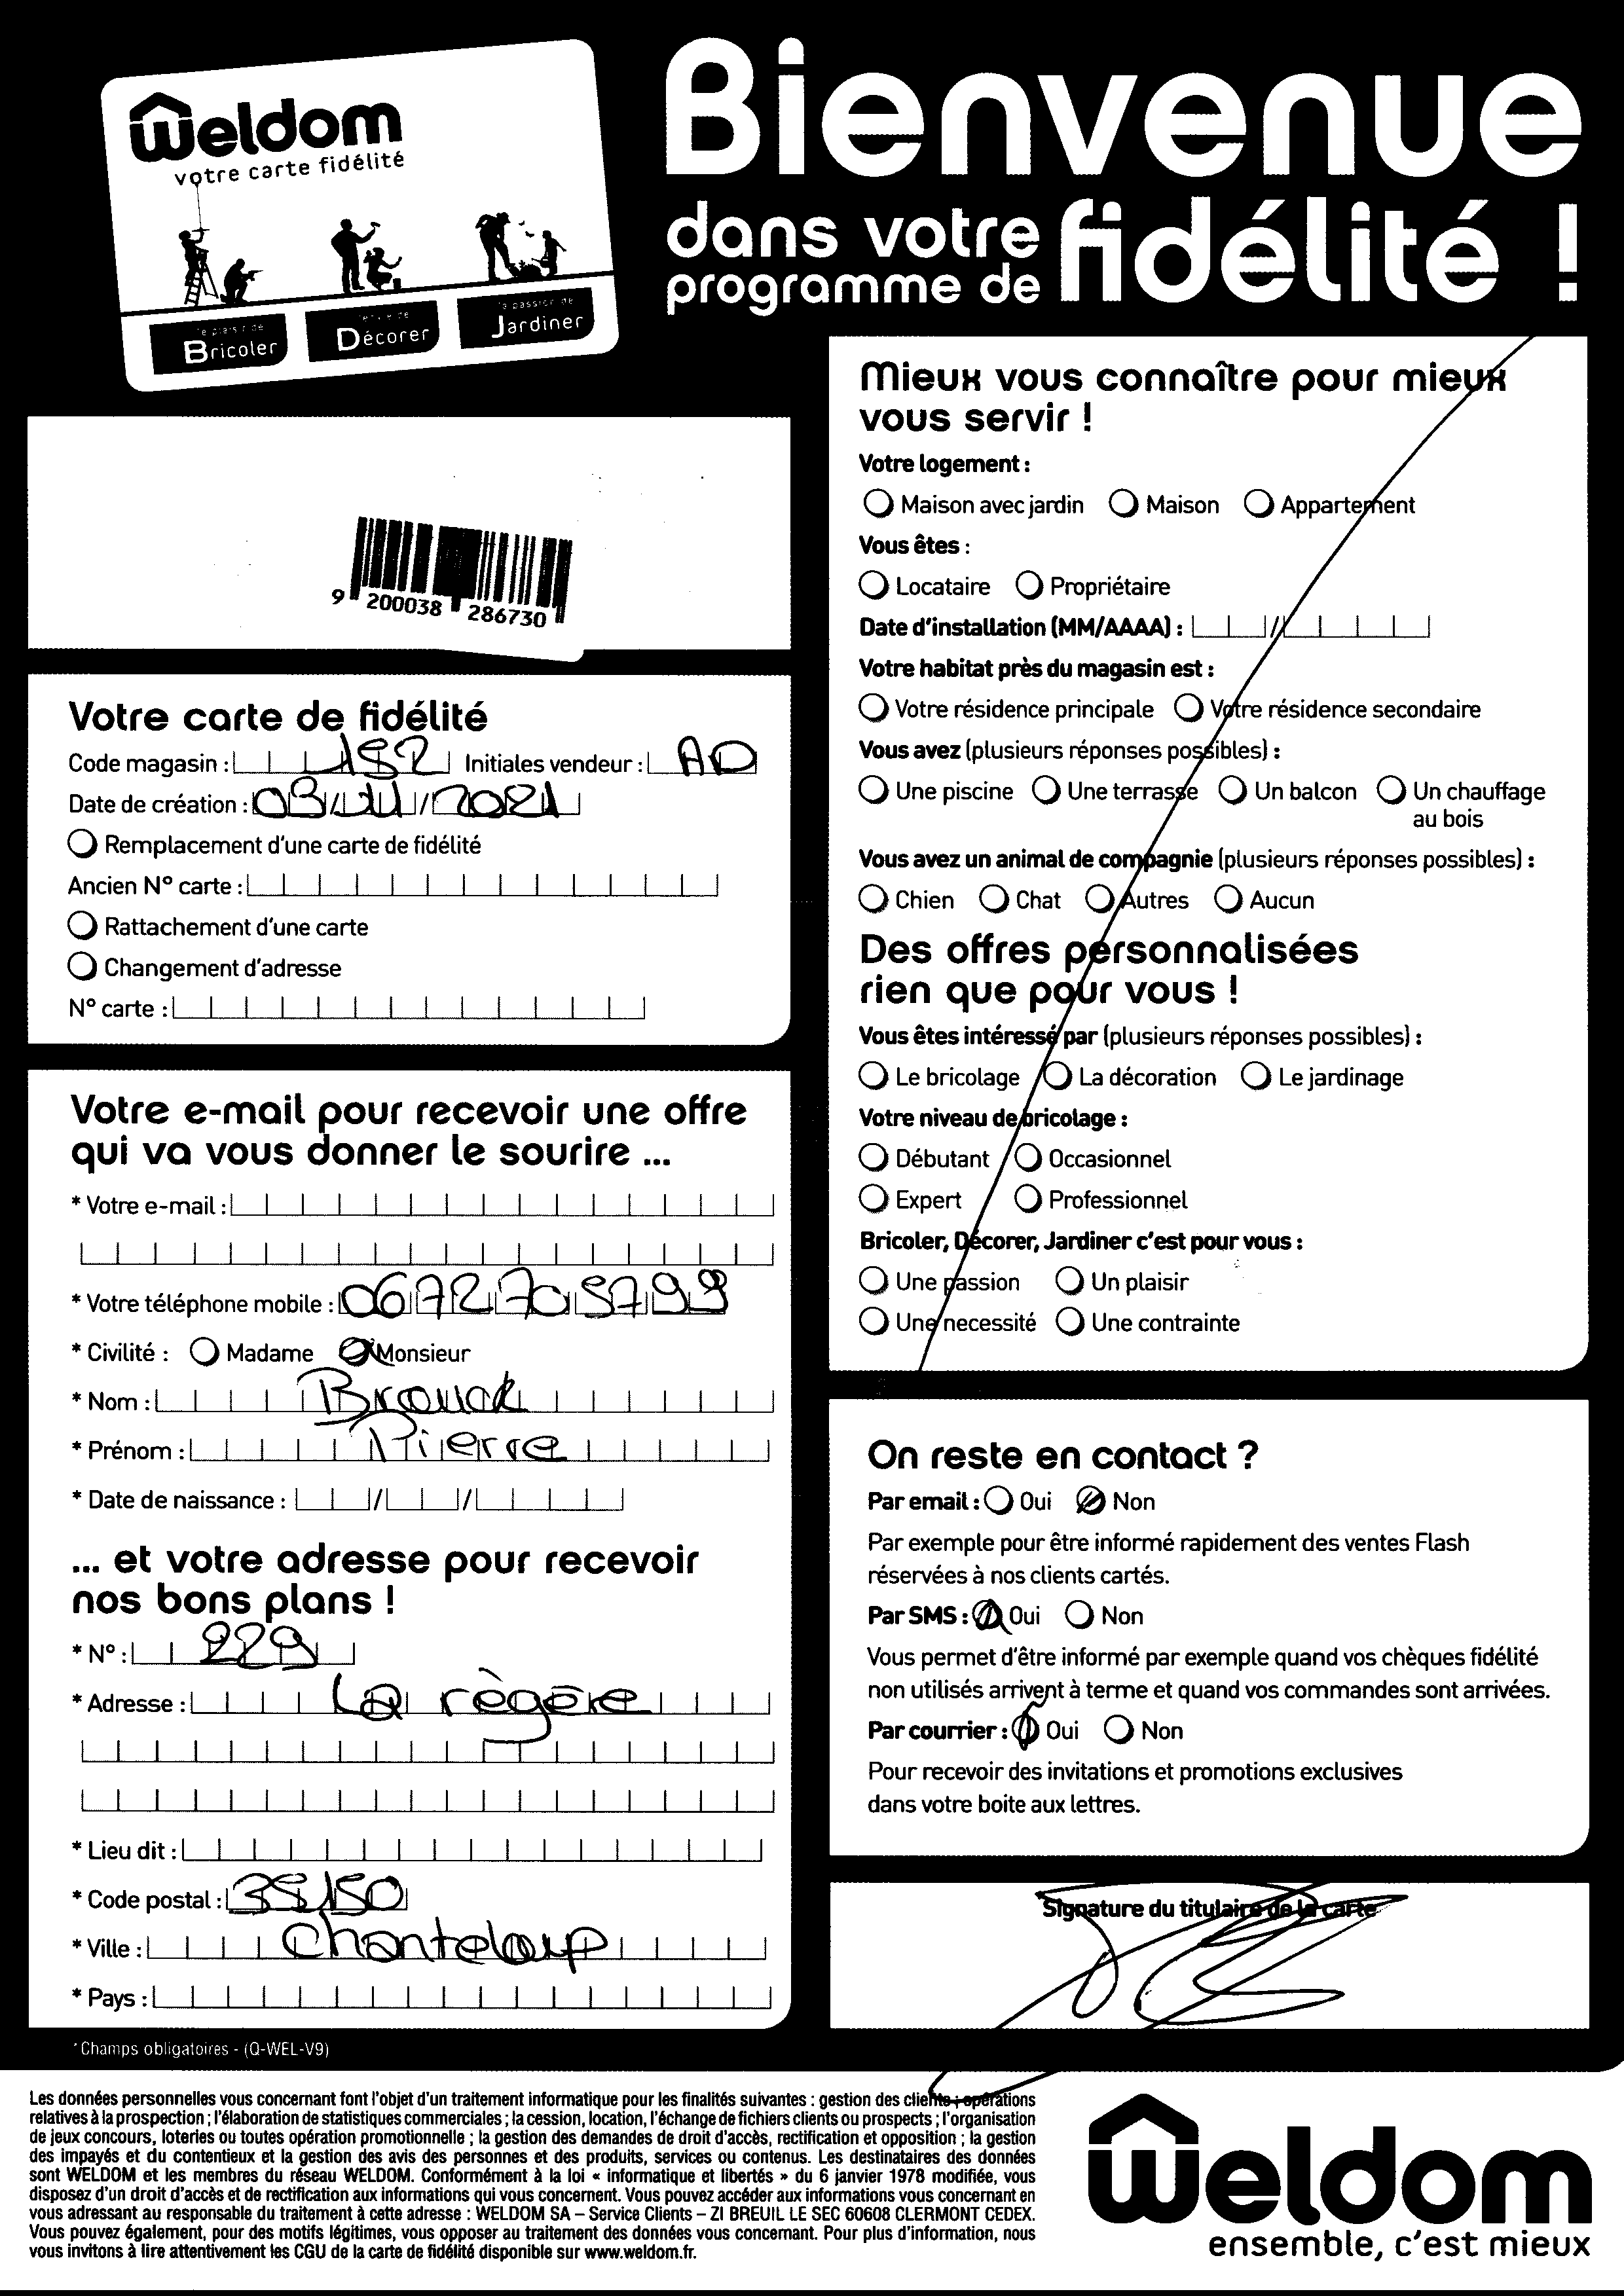 weldom
votre carte fidélité
le plaisir de
Bricoler
l'envie de
Décorer
la passion de
Jardiner
Bienvenue
dans votre
programme de fidélité !
9 200038 286730
Votre carte de fidélité
Code magasin : 152 Initiales vendeur : AD
Date de création : 03/11/2021
Remplacement d'une carte de fidélité
Ancien N° carte :
Rattachement d'une carte
Changement d'adresse
N° carte :
Votre e-mail pour recevoir une offre
qui va vous donner le sourire ...
* Votre e-mail :
* Votre téléphone mobile : 0672705799
* Civilité : Madame Monsieur
* Nom :
* Prénom : Pierre
* Date de naissance : / /
... et votre adresse pour recevoir
nos bons plans !
* N° : 229
* Adresse : La règère
* Lieu dit :
* Code postal : 35150
* Ville : Chanteloup
* Pays :
*Champs obligatoires - (Q-WEL-V9)
Mieux vous connaître pour mieux
vous servir !
Votre logement :
Maison avec jardin Maison Appartement
Vous êtes :
Locataire Propriétaire
Date d'installation (MM/AAAA) : /
Votre habitat près du magasin est :
Votre résidence principale Votre résidence secondaire
Vous avez (plusieurs réponses possibles) :
Une piscine Une terrasse Un balcon Un chauffage
au bois
Vous avez un animal de compagnie (plusieurs réponses possibles) :
Chien Chat Autres Aucun
Des offres personnalisées
rien que pour vous !
Vous êtes intéressé par (plusieurs réponses possibles) :
Le bricolage La décoration Le jardinage
Votre niveau de bricolage :
Débutant Occasionnel
Expert Professionnel
Bricoler, Décorer, Jardiner c'est pour vous :
Une passion Un plaisir
Une necessité Une contrainte
On reste en contact ?
Par email : Oui Non
Par exemple pour être informé rapidement des ventes Flash
réservées à nos clients cartés.
Par SMS : Oui Non
Vous permet d'être informé par exemple quand vos chèques fidélité
non utilisés arrivent à terme et quand vos commandes sont arrivées.
Par courrier : Oui Non
Pour recevoir des invitations et promotions exclusives
dans votre boite aux lettres.
*Signature du titulaire de la carte
Les données personnelles vous concernant font l'objet d'un traitement informatique pour les finalités suivantes : gestion des clients ; opérations
relatives à la prospection ; l'élaboration de statistiques commerciales ; la cession, location, l'échange de fichiers clients ou prospects ; l'organisation
de jeux concours, loteries ou toutes opération promotionnelle ; la gestion des demandes de droit d'accès, rectification et opposition ; la gestion
des impayés et du contentieux et la gestion des avis des personnes et des produits, services ou contenus. Les destinataires des données
sont WELDOM et les membres du réseau WELDOM. Conformément à la loi « informatique et libertés » du 6 janvier 1978 modifiée, vous
disposez d'un droit d'accès et de rectification aux informations qui vous concernent. Vous pouvez accéder aux informations vous concernant en
vous adressant au responsable du traitement à cette adresse : WELDOM SA – Service Clients – ZI BREUIL LE SEC 60608 CLERMONT CEDEX.
Vous pouvez également, pour des motifs légitimes, vous opposer au traitement des données vous concernant. Pour plus d'information, nous
vous invitons à lire attentivement les CGU de la carte de fidélité disponible sur www.weldom.fr.
weldom
ensemble, c'est mieux